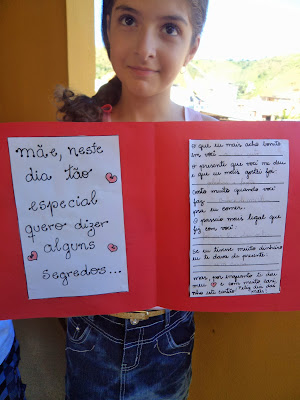 mãe, neste
dia tão
especial
quero dizer
alguns
segredos...
O que eu mais acho bonito
em você
O presente que você me deu
e que eu mais gostei foi:
Gosto muito quando você
faz
pra eu comer.
O passeio mais legal que
fiz com você
Se eu tivesse muito dinheiro
eu te dava de presente:
mas, por enquanto te dou
meu e com muito cari
nho este cartão. Feliz dia das
mães